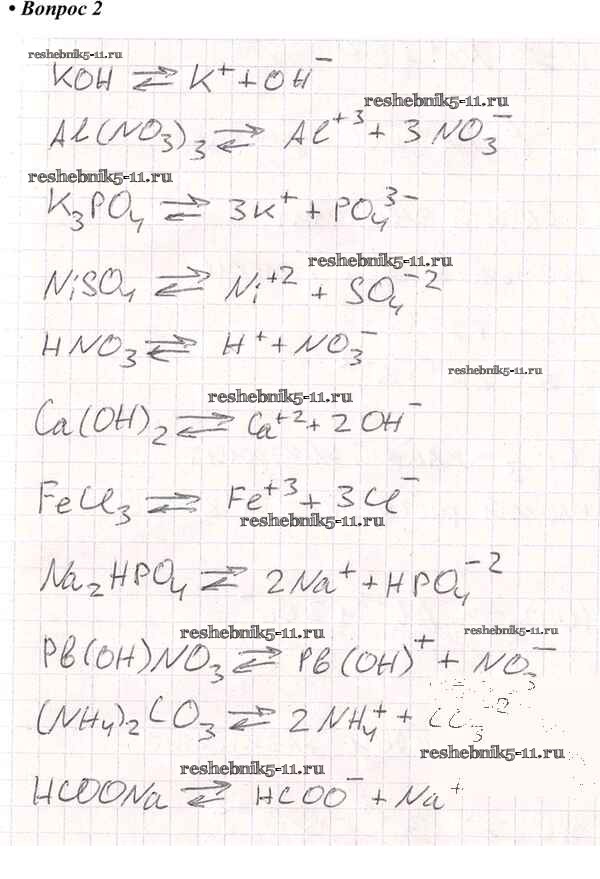 • Вопрос 2
reshebnik5-11.ru
KOH ⇄ K⁺ + OH⁻
reshebnik5-11.ru
Al(NO₃)₃ ⇄ Al⁺³ + 3NO₃⁻
reshebnik5-11.ru
K₃PO₄ ⇄ 3K⁺ + PO₄³⁻
reshebnik5-11.ru
NiSO₄ ⇄ Ni⁺² + SO₄⁻²
HNO₃ ⇄ H⁺ + NO₃⁻
reshebnik5-11.ru
reshebnik5-11.ru
Ca(OH)₂ ⇄ Ca⁺² + 2OH⁻
FeCl₃ ⇄ Fe⁺³ + 3Cl⁻
reshebnik5-11.ru
Na₂HPO₄ ⇄ 2Na⁺ + HPO₄⁻²
reshebnik5-11.ru reshebnik5-11.ru
Pb(OH)NO₃ ⇄ Pb(OH)⁺ + NO₃⁻
(NH₄)₂CO₃ ⇄ 2NH₄⁺ + CO₃⁻²
reshebnik5-11.ru
reshebnik5-11.ru
HCOONa ⇄ HCOO⁻ + Na⁺